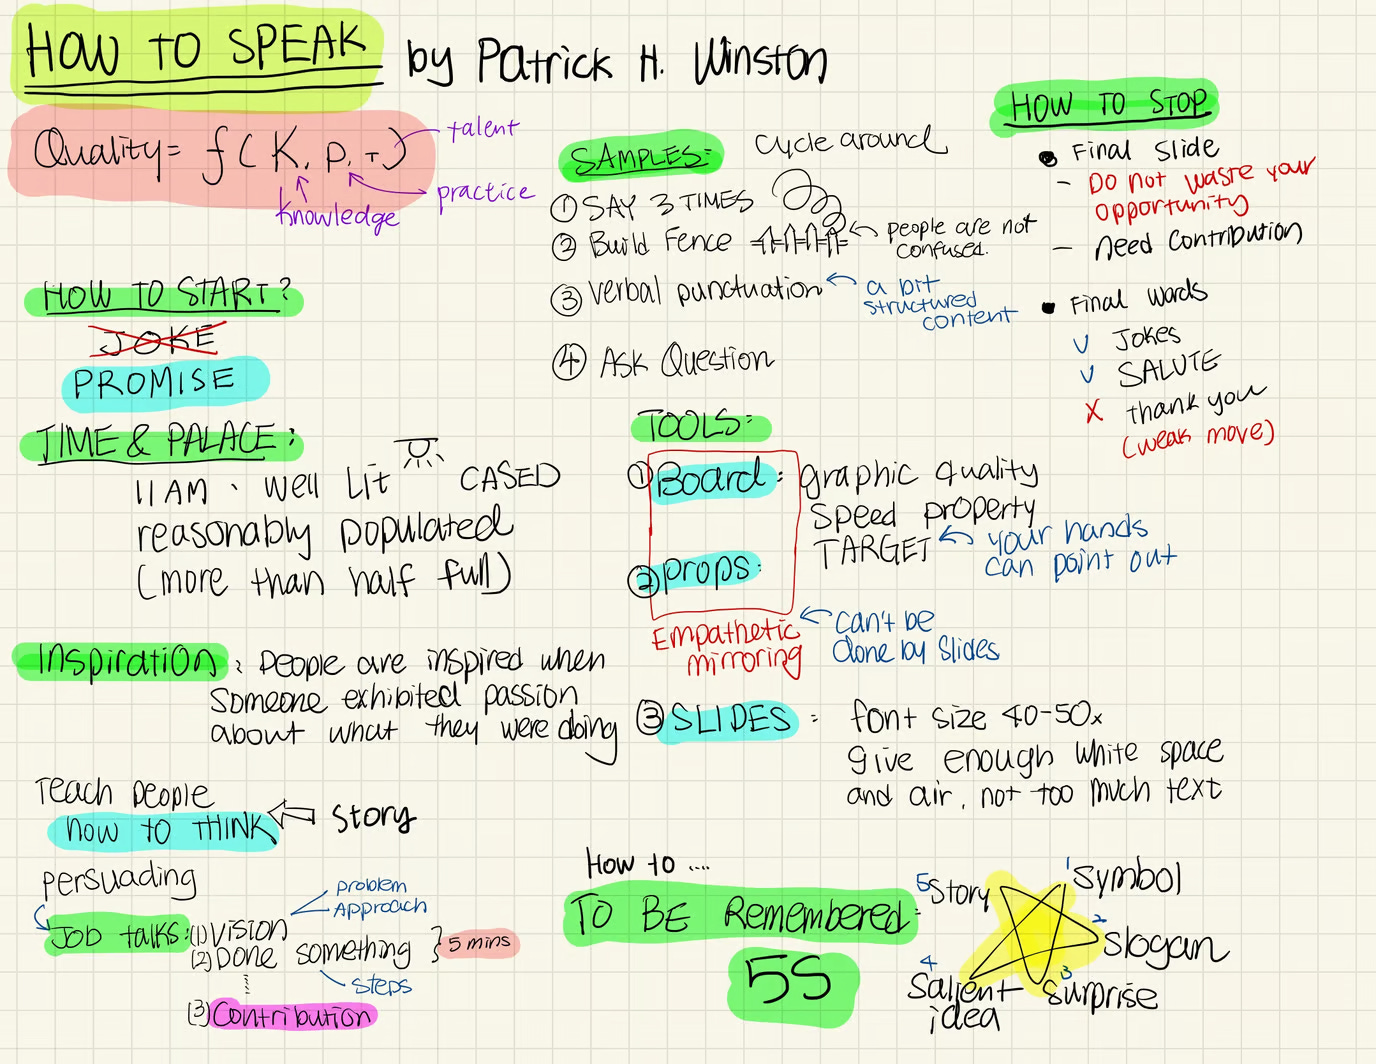 HOW TO SPEAK by Patrick H. Winston
Quality = f(K, P, T)
talent
knowledge
practice
HOW TO START?
JOKE
PROMISE
TIME & PALACE:
11AM. Well Lit CASED
reasonably populated
(more than half full)
Inspiration: People are inspired when
someone exhibited passion
about what they were doing
Teach people
how to THINK
Story
persuading
JOB talks:
(1) Vision
Problem
Approach
(2) Done something
5 mins
steps
(3) Contribution
SAMPLES:
Cycle around
① SAY 3 TIMES
② Build Fence
people are not
confused.
③ Verbal punctuation
a bit
structured
content
④ Ask Question
TOOLS:
① Board: graphic quality
speed property
TARGET
your hands
can point out
② props:
Empathetic
mirroring
can't be
done by slides
③ SLIDES: font size 40-50x
give enough white space
and air, not too much text
How to ....
TO BE Remembered:
5S
1 Symbol
2 Slogan
3 Surprise
4 Salient
idea
5 Story
HOW TO STOP
• Final Slide
- Do not waste your
opportunity
- need Contribution
• Final Words
v Jokes
v SALUTE
x thank you
(weak move)